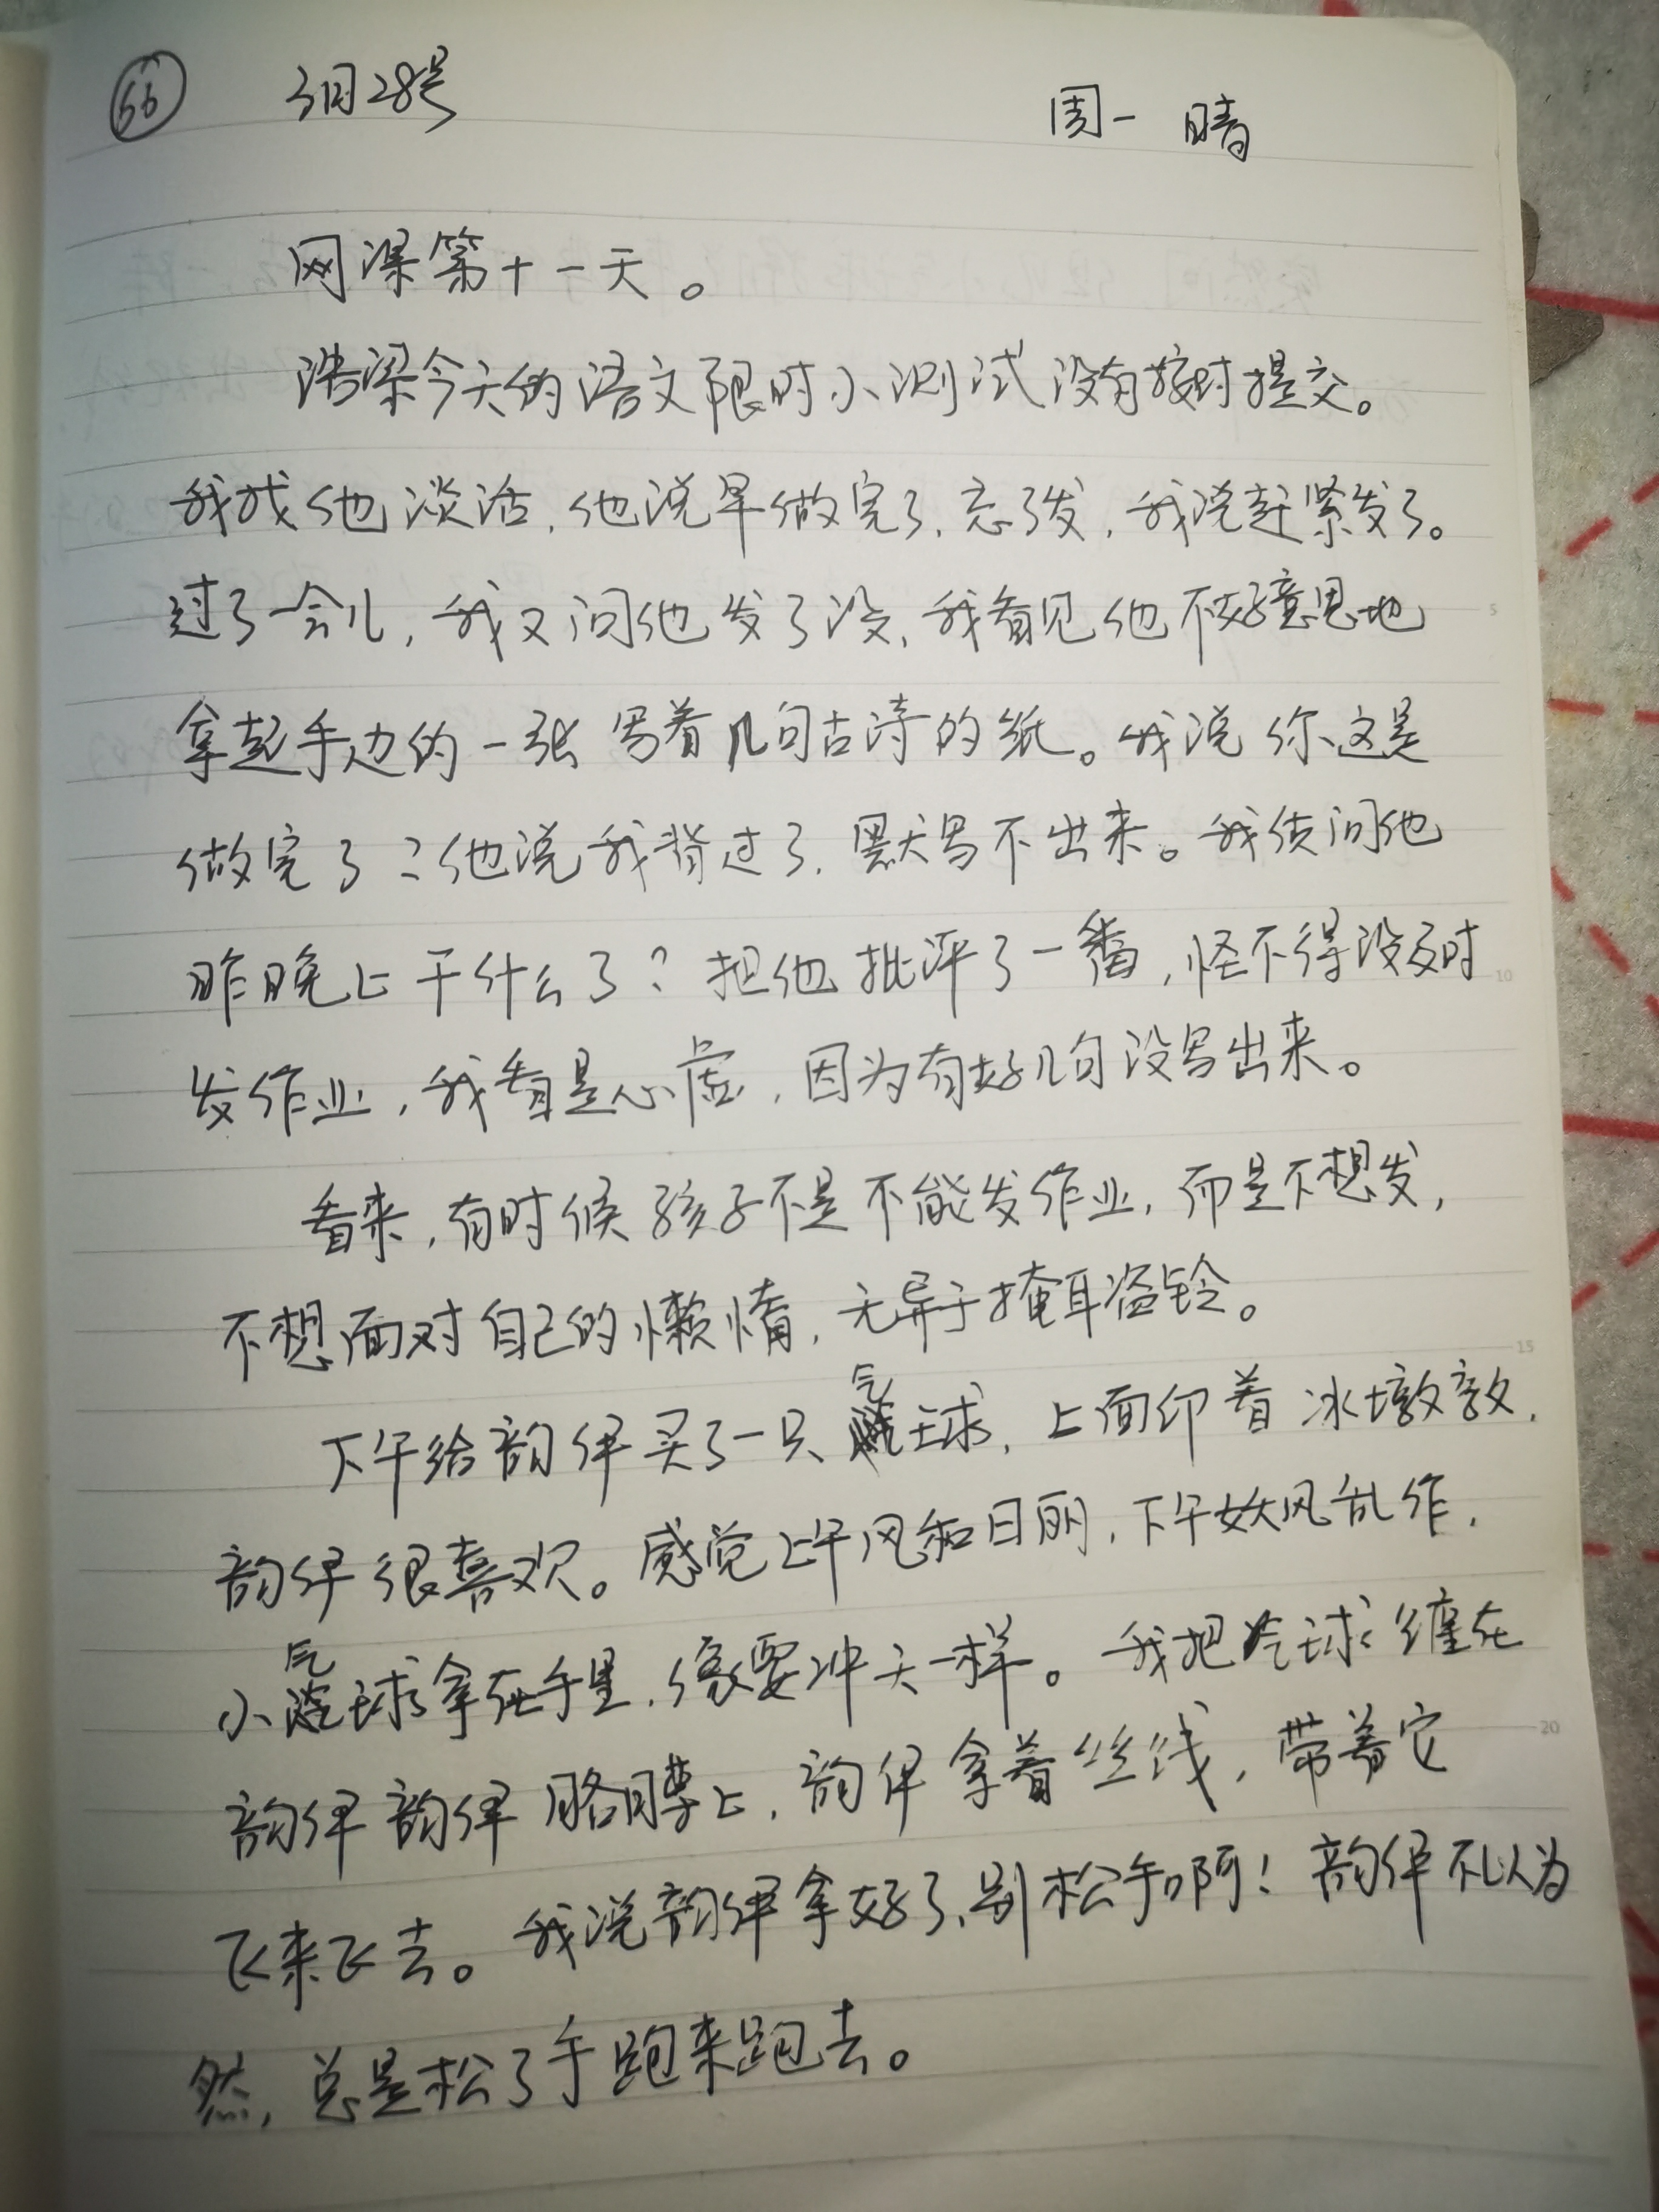 66 3月28号 周一 晴
网课第十一天。
浩梁今天的语文限时小测试没有按时提交。
我找他谈话,他说早做完了,忘了发,我说赶紧发了。
过了一会儿,我又问他发了没,我看见他不好意思地
拿起手边的一张写着几句古诗的纸。我说你这是
做完了?他说我背过了,默写不出来。我质问他
昨晚上干什么了?把他批评了一番,怪不得没及时
发作业,我看是心虚,因为有好几句没写出来。
看来,有时候孩子不是不能发作业,而是不想发,
不想面对自己的懒惰,无异于掩耳盗铃。
下午给韵伊买了一只气球,上面印着冰墩墩,
韵伊很喜欢。感觉上午风和日丽,下午妖风乱作,
小气球拿在手里,像要冲天一样。我把气球缠在
韵伊韵伊胳膊上,韵伊拿着丝线,带着它
飞来飞去。我说韵伊拿好了,别松手啊!韵伊不以为
然,总是松了手跑来跑去。
5
10
15
20